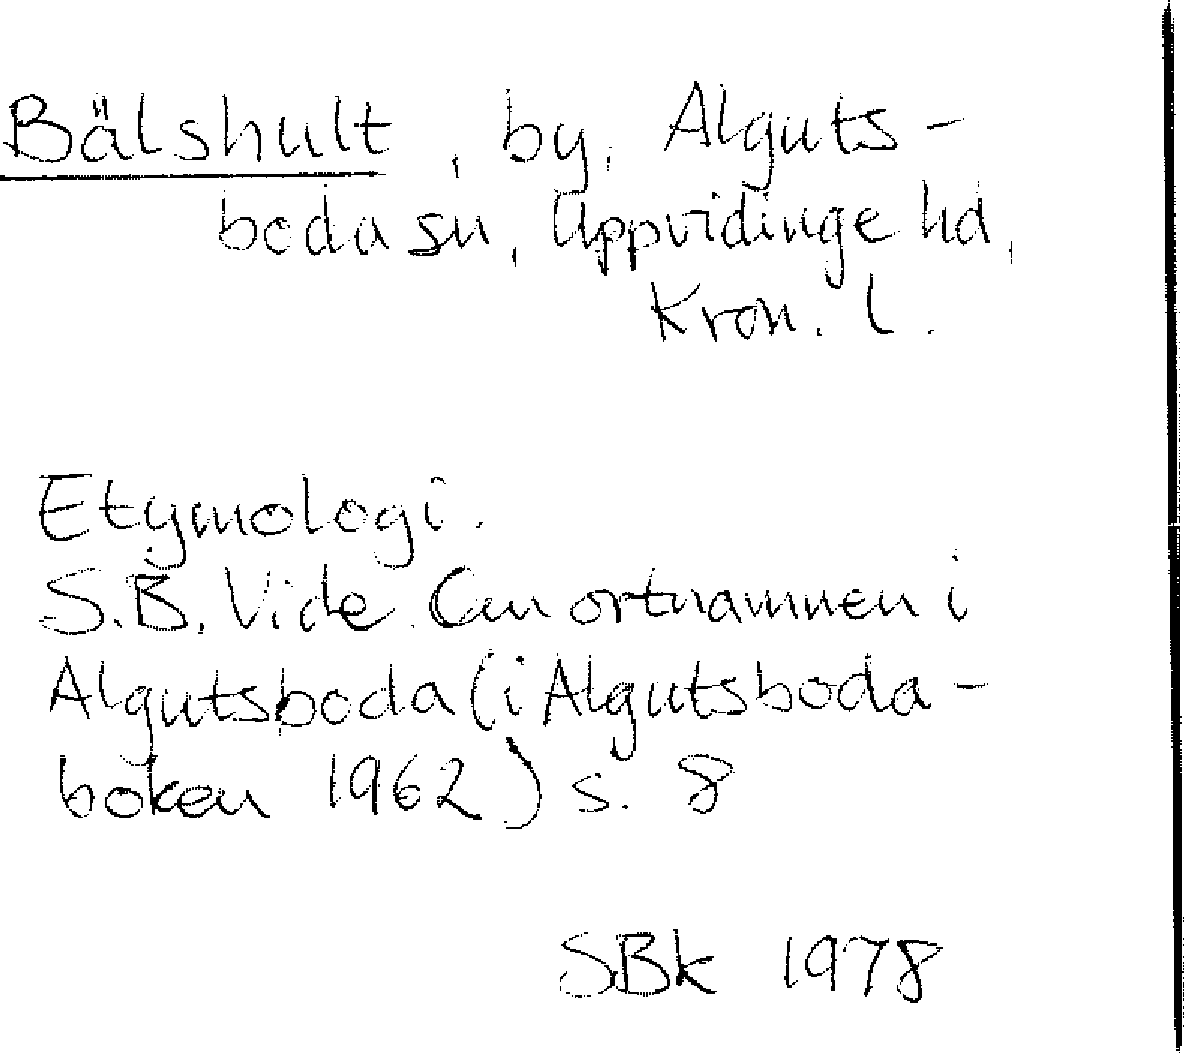 Bälshult, by, Alguts-
boda sn, Uppvidinge hd,
Kron. l.
Etymologi.
S.B. Vide. Om ortnamnen i
Algutsboda (i Algutsboda-
boken 1962) s. 8
SBk 1978